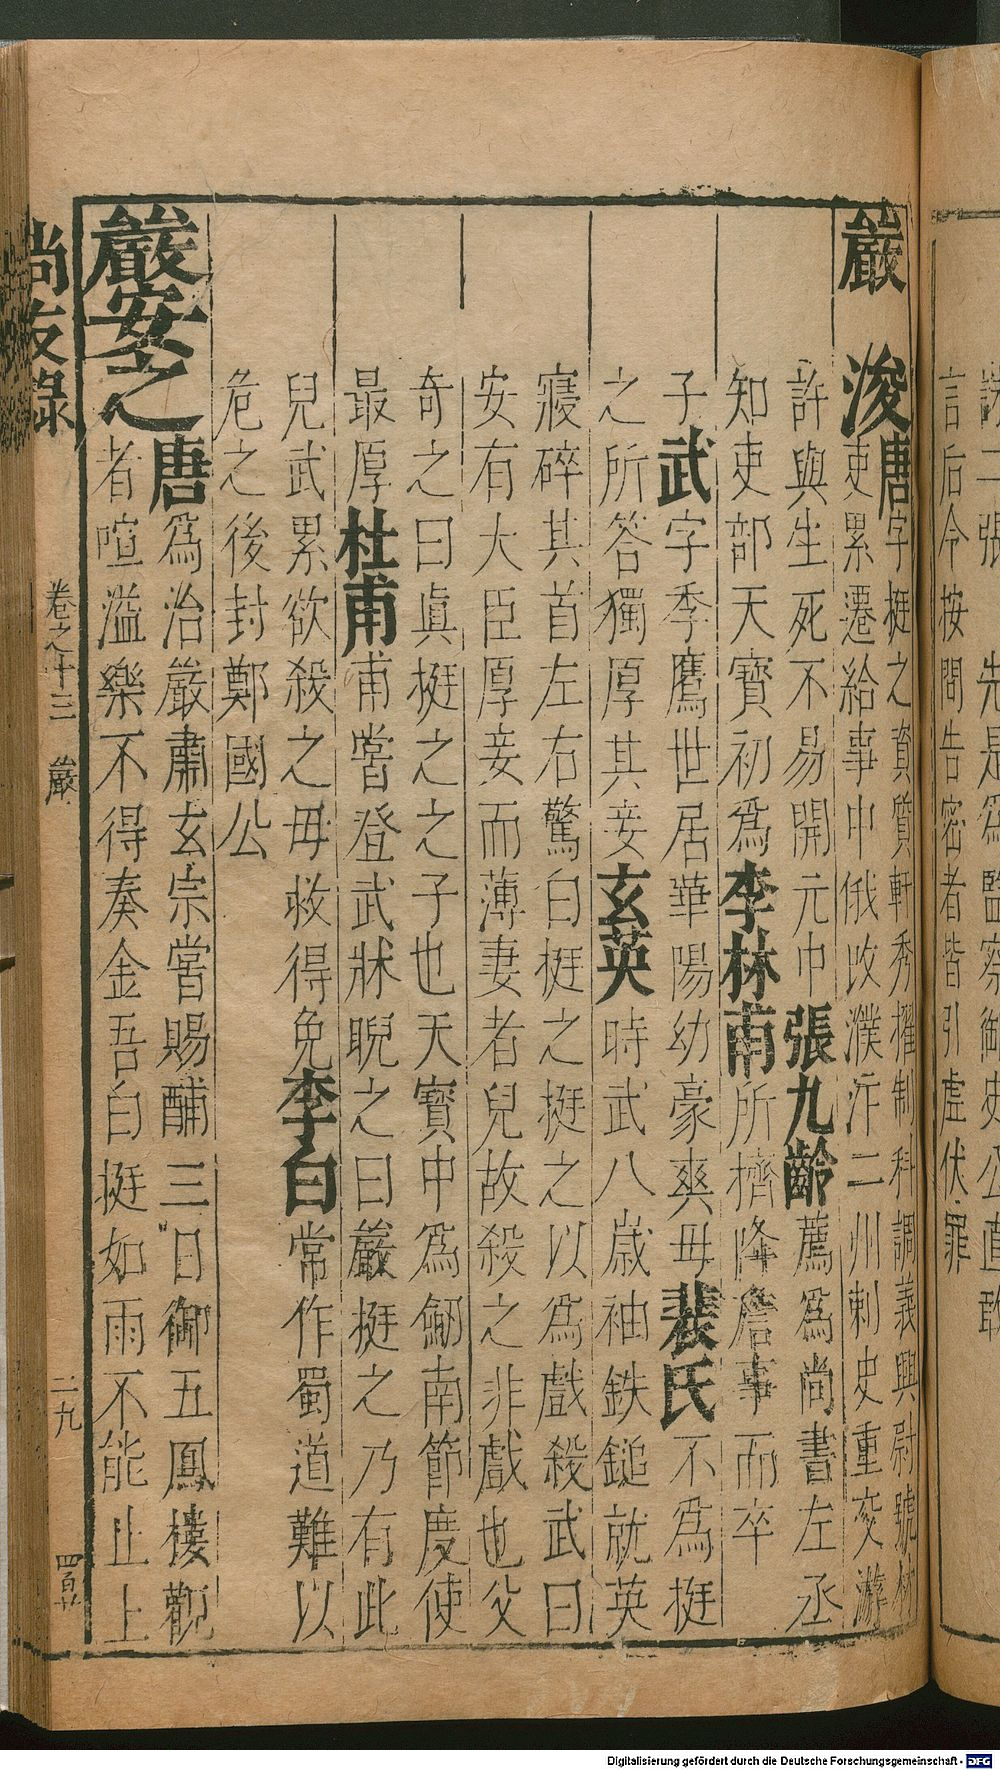 言后令按問告密者皆引虛伏罪
嚴浚唐字挺之資質軒秀擢制科調義興尉號材
吏累遷給事中俄改濮汴二州刺史重交游
許與生死不易開元中張九齡薦爲尚書左丞
知吏部天寶初爲李林甫所擠降詹事而卒
子武字季鷹世居華陽幼豪爽毋裴氏不爲挺
之所答獨厚其妾玄英時武八歲袖鉄鎚就英
寢碎其首左右驚白挺之挺之以爲戲殺武曰
安有大臣厚妾而薄妻者兒故殺之非戲也父
奇之曰眞挺之之子也天寶中爲劒南節度使
最厚杜甫甫嘗登武牀睨之曰嚴挺之乃有此
兒武累欲殺之毋救得免李白常作蜀道難以
危之後封鄭國公
嚴安之唐爲治嚴肅玄宗嘗賜酺三日御五鳳樓觀
者喧溢樂不得奏金吾白挺如雨不能止上
尚友錄 卷之十三 嚴 二九 四百廿
Digitalisierung gefördert durch die Deutsche Forschungsgemeinschaft - DFG